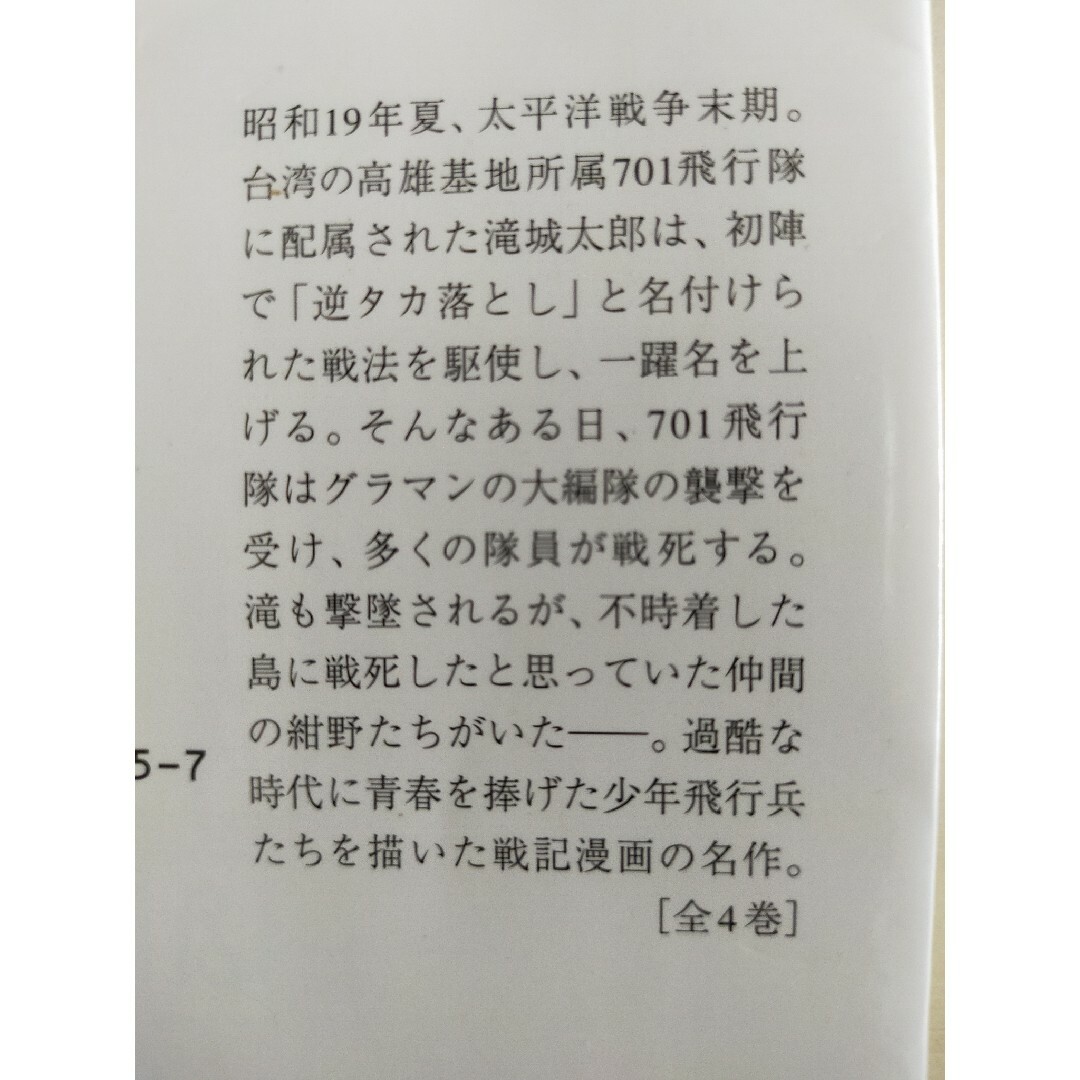 昭和19年夏、太平洋戦争末期。
台湾の高雄基地所属701飛行隊
に配属された滝城太郎は、初陣
で「逆タカ落とし」と名付けら
れた戦法を駆使し、一躍名を上
げる。そんなある日、701飛行
隊はグラマンの大編隊の襲撃を
受け、多くの隊員が戦死する。
滝も撃墜されるが、不時着した
島に戦死したと思っていた仲間
の紺野たちがいた――。過酷な
時代に青春を捧げた少年飛行兵
たちを描いた戦記漫画の名作。
［全4巻］
5-7